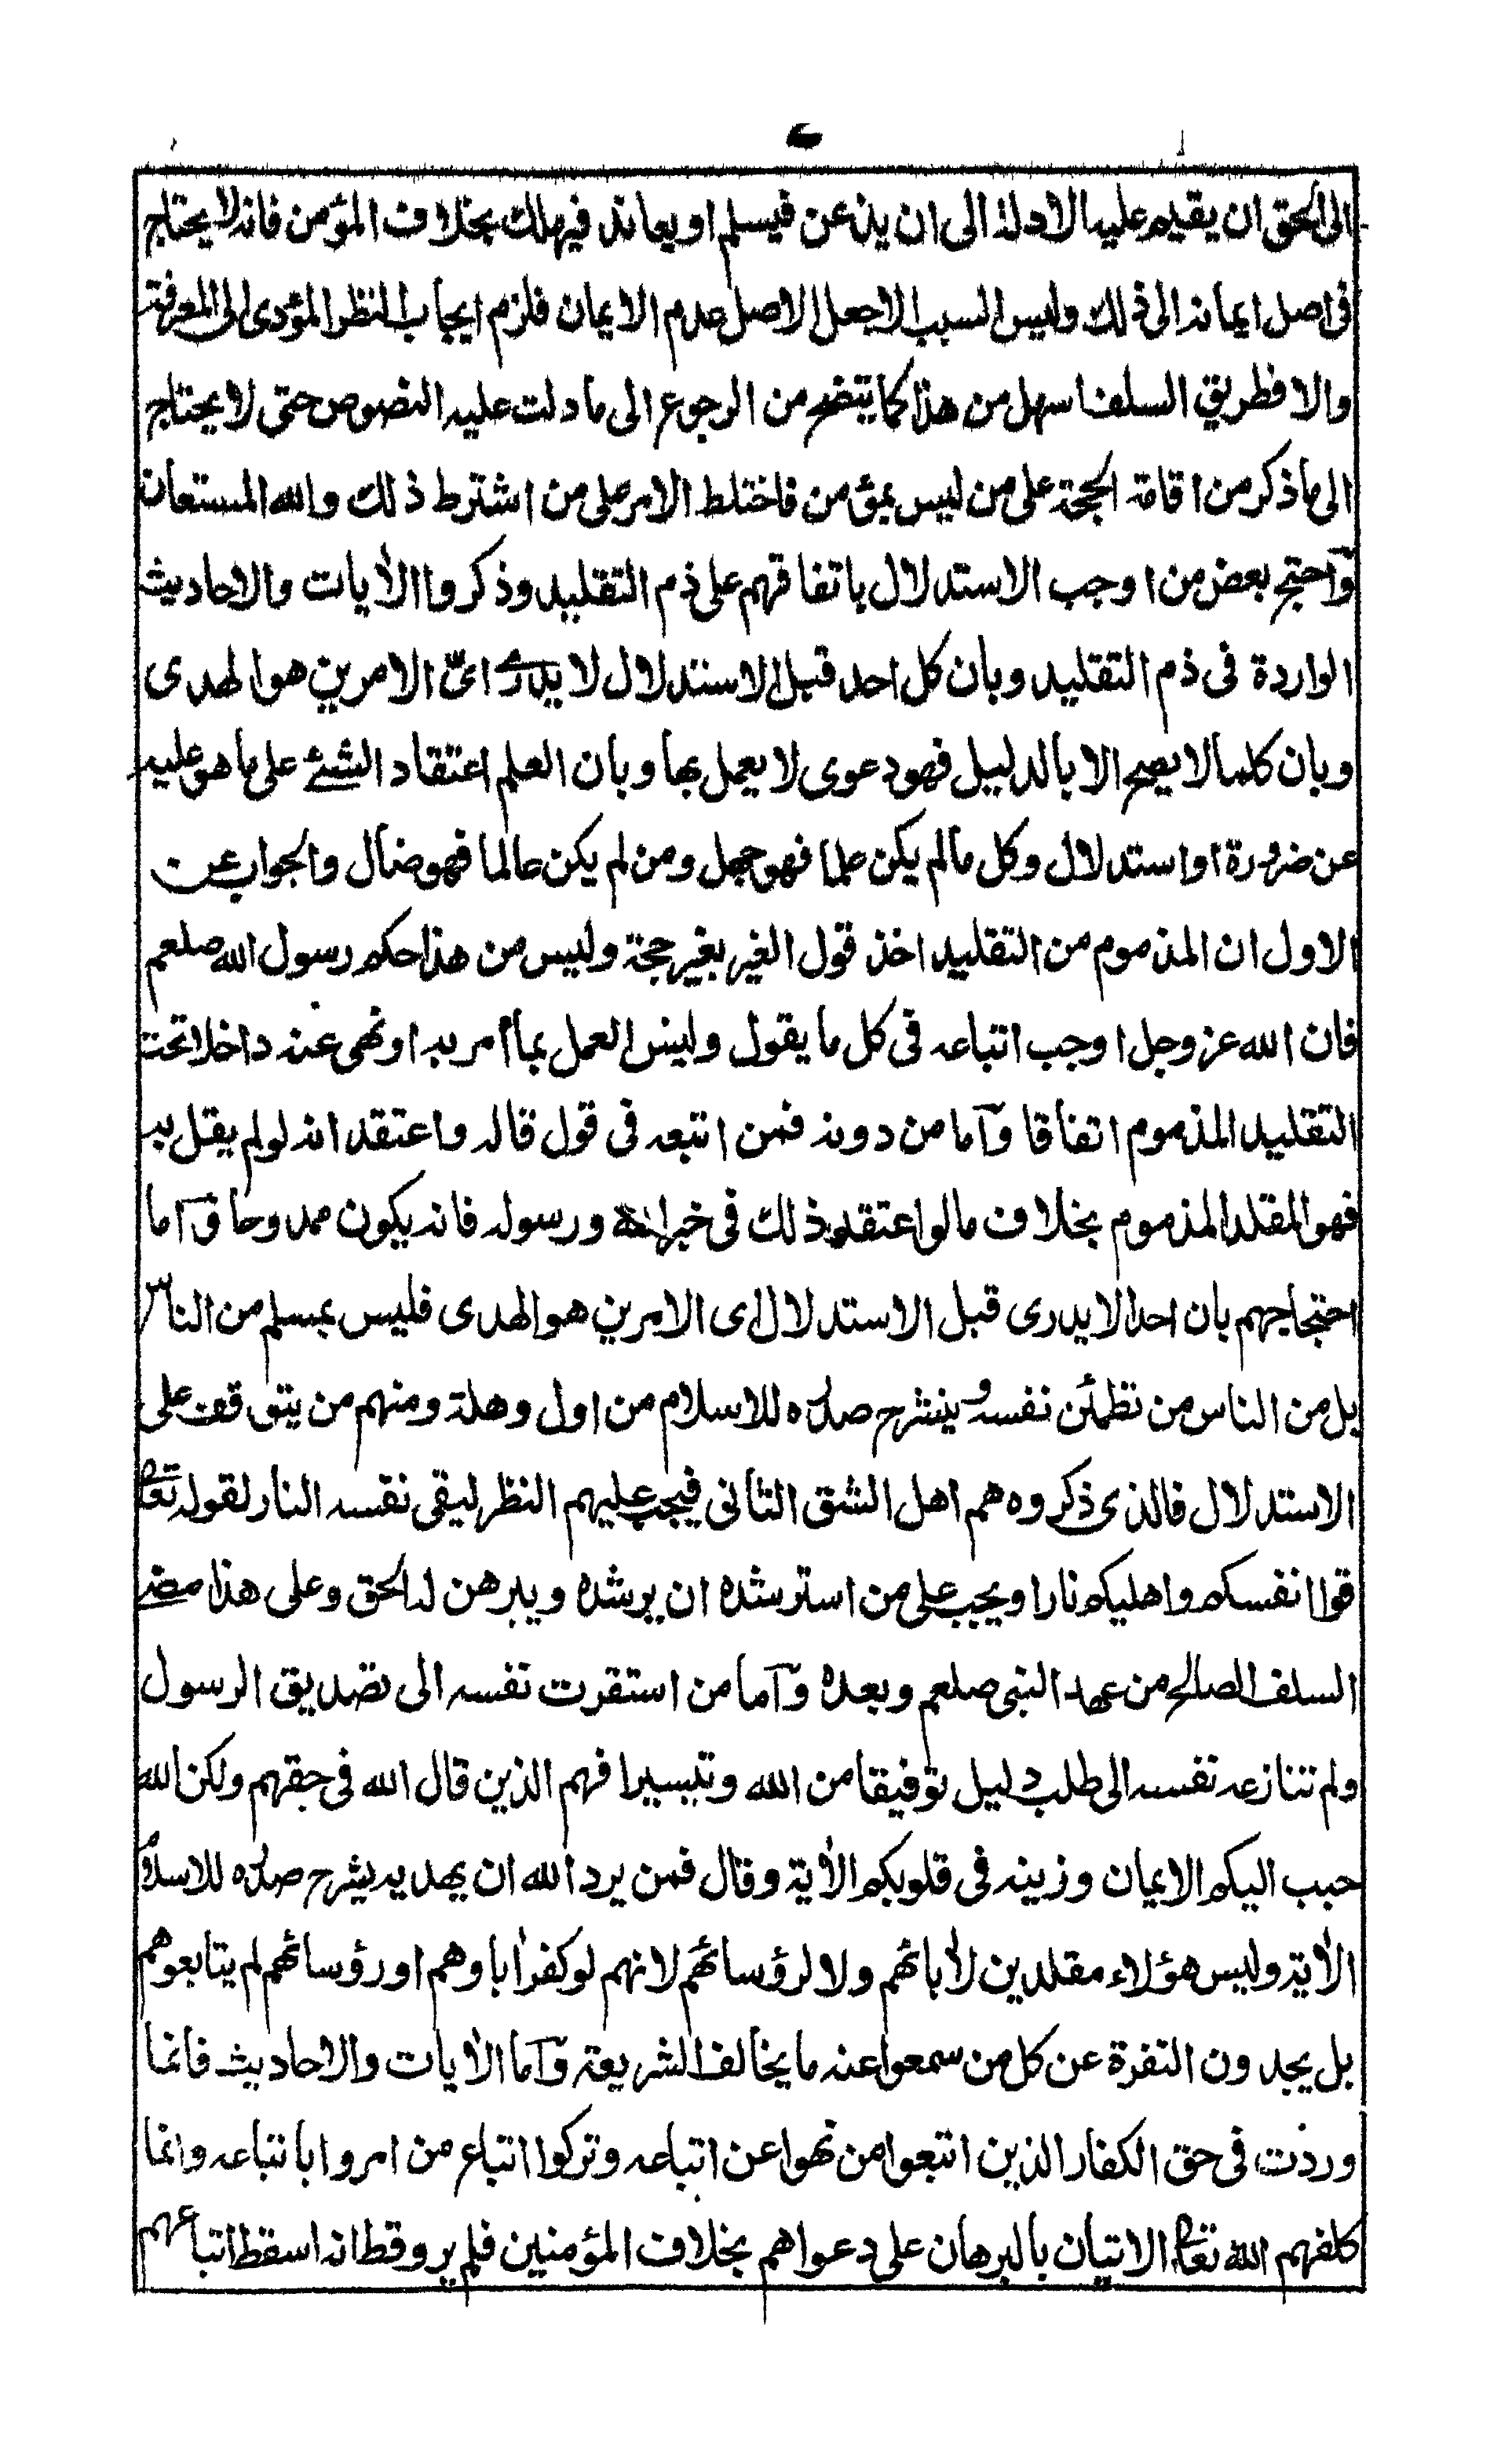 الى الحق ان يقيم عليه الادلة الى ان يذعن فيسلم او يعاند فيهلك بخلاف المؤمن فانه لا يحتاج
فى اصل ايمانه الى ذلك وليس السبب الا جعل الاصل عدم الايمان فلزم ايجاب النظر المؤدى الى المعرفة
والا فطريق السلف اسهل من هذا كما يتضح من الرجوع الى ما دلت عليه النصوص حتى لا يحتاج
الى ما ذكر من اقامة الحجة على من ليس بمؤمن فاختلط الامر على من اشترط ذلك والله المستعان
وآحتج بعض من اوجب الاستدلال باتفاقهم على ذم التقليد وذكروا الأيات والاحاديث
الواردة فى ذم التقليد وبان كل احد قبل الاستدلال لا يدرے اىّ الامرين هو الهدى
وبان كلما لا يصح الا بالدليل فهو دعوى لا يعمل بها وبان العلم اعتقاد الشئے على ما هو عليه
عن ضرورة او استدلال وكل ما لم يكن علما فهو جهل ومن لم يكن عالما فهو ضال والجواب عن
الاول ان المذموم من التقليد اخذ قول الغير بغير حجة وليس من هذا حكم رسول الله صلعم
فان الله عز وجل اوجب اتباعه فى كل ما يقول وليس العمل بما أمر به او نهى عنه داخلا تحت
التقليد المذموم اتفاقا وآما من دونه فمن اتبعه فى قول قاله واعتقد انه لو لم يقل به
فهو المقلد المذموم بخلاف ما لو اعتقد ذلك فى خبر الله ورسوله فانه يكون ممدوحا وآما
احتجاجهم بان احدا لا يدرى قبل الاستدلال اى الامرين هو الهدى فليس بمسلم من الناس
بل من الناس من تطمئن نفسه و ينشرح صدره للاسلام من اول وهلة ومنهم من يتوقف على
الاستدلال فالذى ذكروه هم اهل الشق الثانى فيجب عليهم النظر ليقى نفسه النار لقوله تعالى
قوا انفسكم واهليكم نارا ويجب على من استرشده ان يرشده ويبرهن له الحق وعلى هذا مضے
السلف الصالح من عهد النبى صلعم وبعده وآما من استقرت نفسه الى تصديق الرسول
ولم تنازعه نفسه الى طلب دليل توفيقا من الله وتيسيرا فهم الذين قال الله فى حقهم ولكن الله
حبب اليكم الايمان وزينه فى قلوبكم الأية وقال فمن يرد الله ان يهديه يشرح صدره للاسلام
الأية وليس هؤلاء مقلدين لأبائهم ولا لرؤسائهم لانهم لو كفر اٰباؤهم او رؤسائهم لم يتابعوهم
بل يجدون النفرة عن كل من سمعوا عنه ما يخالف الشريعة وآما الأيات والاحاديث فانما
وردت فى حق الكفار الذين اتبعوا من نهوا عن اتباعه وتركوا اتباع من امروا باتباعه وانما
كلفهم الله تعالى الاتيان بالبرهان على دعواهم بخلاف المؤمنين فلم يرو قط انه اسقط اتباعهم